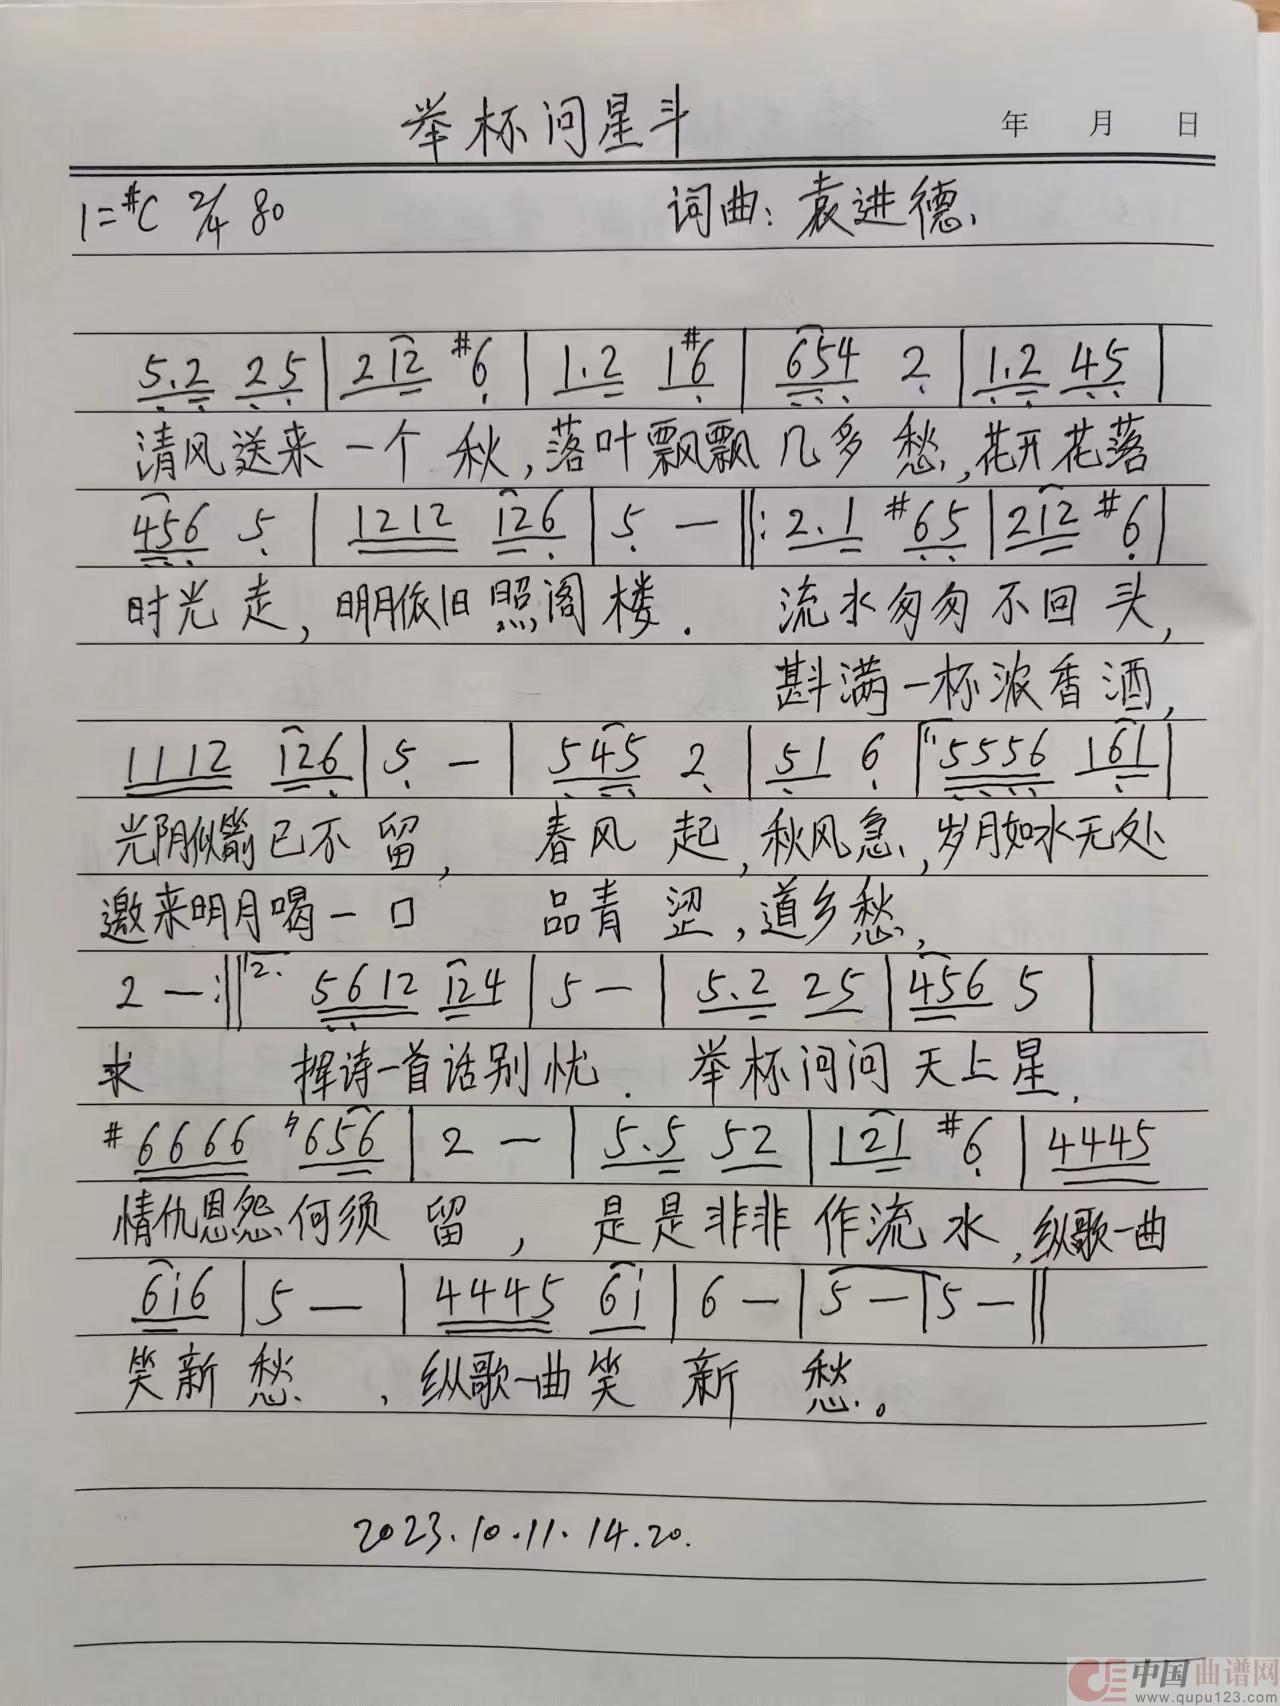 举杯问星斗 年 月 日
1=#C 2/4 80 词曲：袁进德.
5.2 25 | 212 #6 | 1.2 1#6 | 654 2 | 1.2 45 |
清风送来一个秋，落叶飘飘几多愁，花开花落
456 5 | 1212 126 | 5 — ‖: 2.1 #65 | 212 #6 |
时光走，明月依旧照阁楼. 流水匆匆不回头，
斟满一杯浓香酒，
1112 126 | 5 — | 545 2 | 51 6 | 1. 5556 161 |
光阴似箭已不留，春风起，秋风急，岁月如水无处
邀来明月喝一口 品青涩，道乡愁，
2 — :‖ 2. 5612 124 | 5 — | 5.2 25 | 456 5 |
求 挥诗一首话别忧. 举杯问问天上星，
#6666 ♮656 | 2 — | 5.5 52 | 121 #6 | 4445
情仇恩怨何须留，是是非非作流水，纵歌一曲
6i6 | 5 — | 4445 6i | 6 — | 5 — | 5 — ‖
笑新愁，纵歌一曲笑新愁。
2023.10.11.14.20.
中国曲谱网
www.qupu123.com